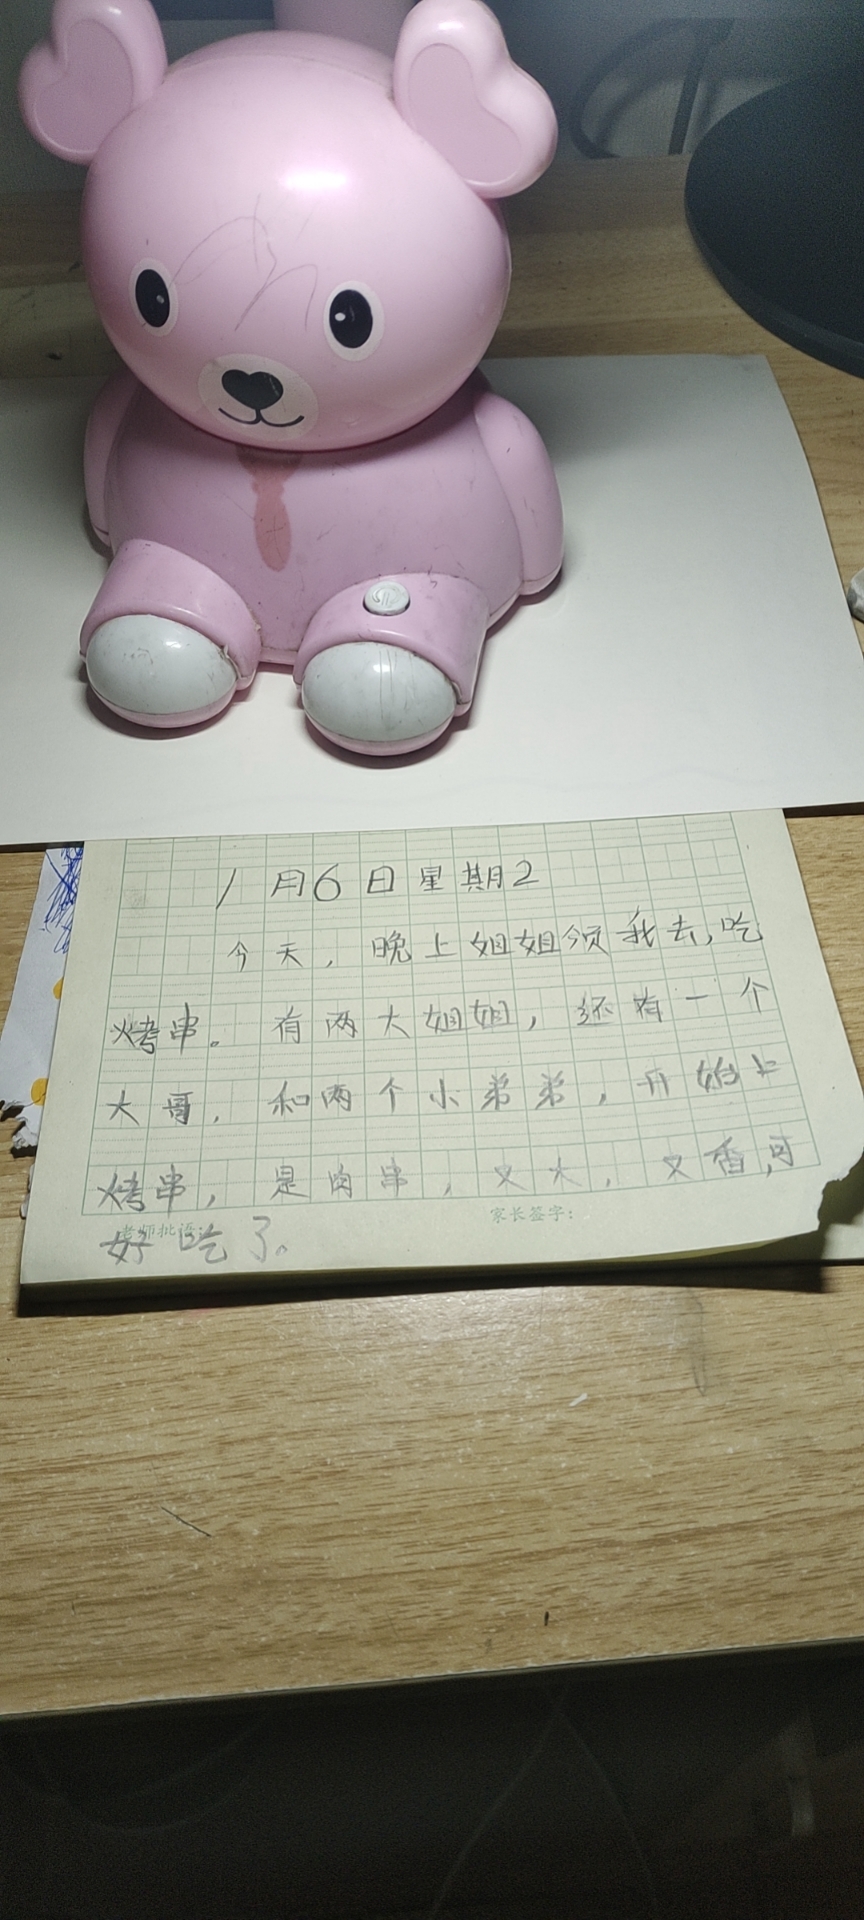 1月6日星期2
今天，晚上姐姐领我去，吃
烤串。有两大姐姐，还有一个
大哥，和两个小弟弟，开始上
烤串，是肉串，又大，又香，可
家长签字：
老师批语：
好吃了。